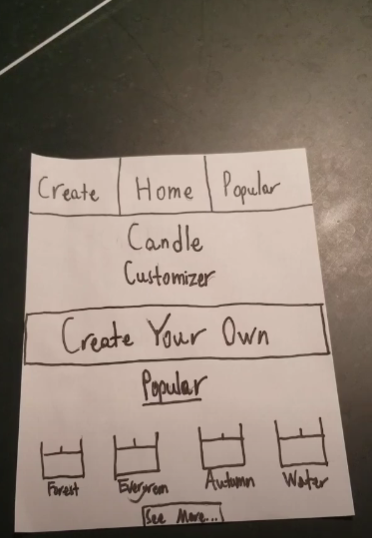 Create Home Popular
Candle
Customizer
Create Your Own
Popular
Forest Evergreen Autumn Water
See More...